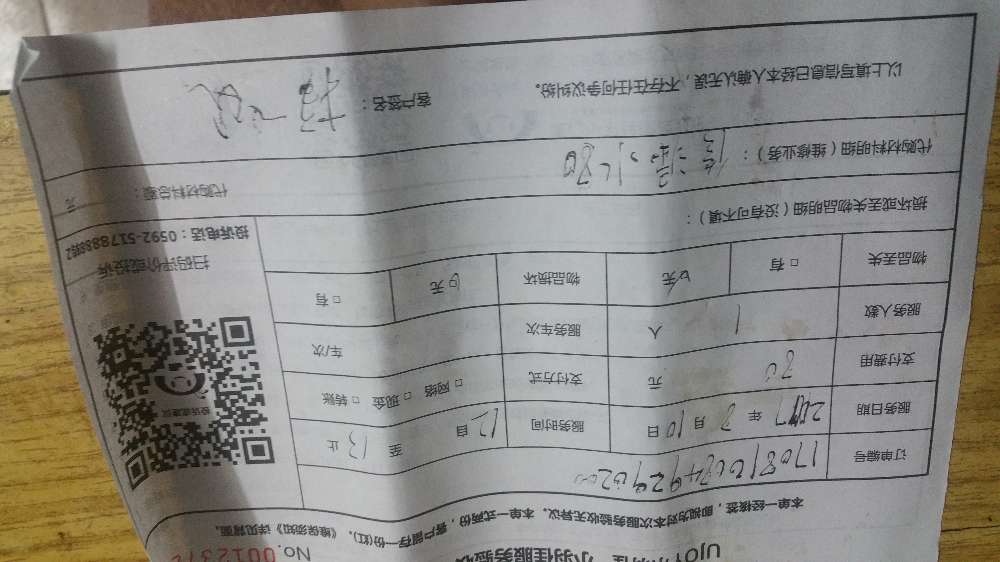 小羽佳服务验收
No. 001237
本单一经接签，即视为对本次服务验收无异议。本单一式两份，客户留存一份(红)。《维保须知》详见背面。
订单编号
服务日期 2017 年 8 月 10 日 服务时间 12 自 至 13 止
支付费用 80 元 支付方式 □ 网络 □ 现金 □ 转账
服务人数 1 人 服务车次 车/次
物品丢失 □ 有 无 物品损坏 无 □ 有
损坏或丢失物品明细（没有可不填）：
代购材料明细（维修业务）： 80
代购材料总额： 元
以上填写信息已经本人确认无误，不存在任何争议纠纷。
客户签名：
投诉或建议
扫码评价或投诉
投诉电话：0592-5178888转2